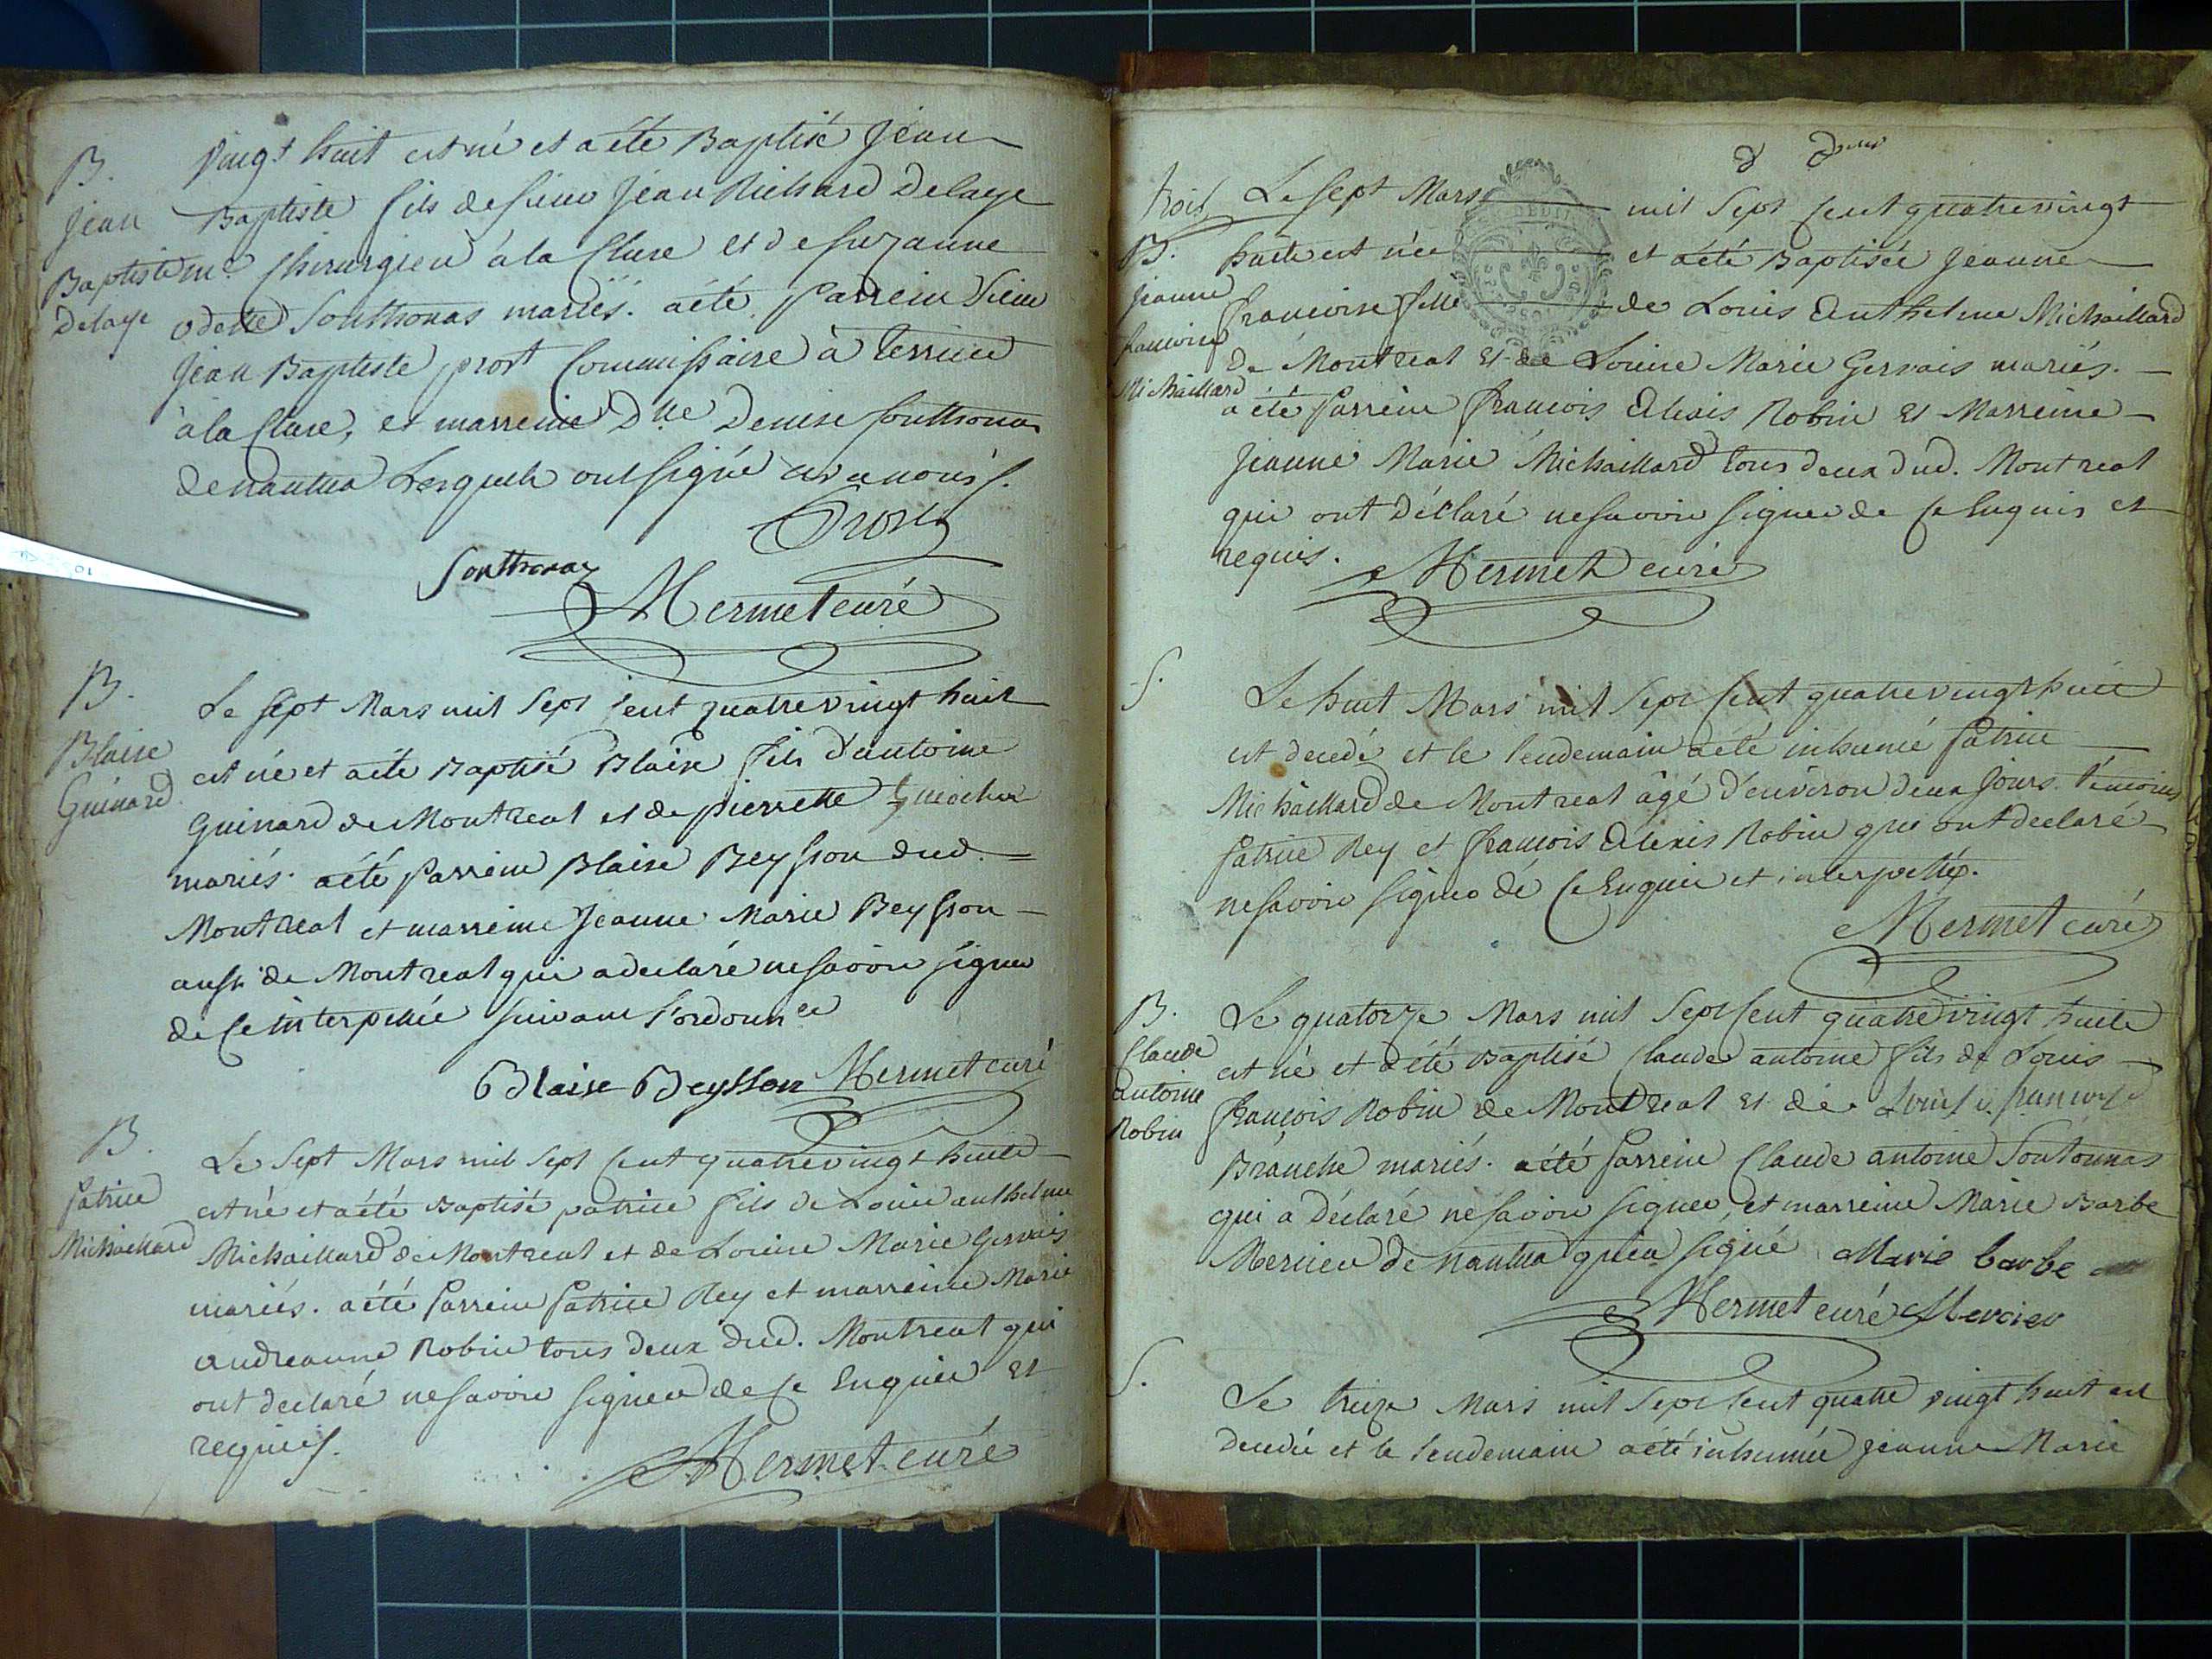 B.
Jean
Baptiste
Delaye
vingt huit est né et a été Baptisé Jean
Baptiste fils de sieur Jean Richard Delaye
me. Chirurgien à la Cluse et de Suzanne
odette Southonas mariés. a été parrein Sieur
Jean Baptiste prost Commissaire à terrier
à la Cluse, et marreine Dlle Denise Southonas
de nantua Lesquels ont signé avec nous
Prost
Southonas
Mermet curé
B.
Blaise
Guinard
Le sept Mars mil sept cent quatrevingt huit
est né et a été Baptisé Blaise fils d'antoine
Guinard de Montreal et de pierrette
mariés. a été parrein Blaise Beysson dud.
Montreal et marreine Jeanne Marie Beysson
aussi de Montreal qui a declaré ne savoir signer
de ce interpellée suivant l'ordonnce
Blaise Beysson Mermet curé
B.
patrice
Michaillard
Le sept Mars mil sept cent quatrevingt huit
est né et a été Baptisé patrice fils de Louis anthelme
Michaillard de Montreal et de Louise Marie Gervais
mariés. a été parrein patrice Rey et marreine Marie
andreanne Robin tous deux dud. Montreal qui
ont declaré ne savoir signer de ce Enquis et
requis.
Mermet curé
trois
B.
Jeanne
francoise
Michaillard
Le sept Mars mil sept cent quatrevingt
huit est née et a été Baptisée Jeanne
francoise fille de Louis Anthelme Michaillard
de Montreal et de Louise Marie Gervais mariés.
a été parrein francois Alexis Robin et Marreine
Jeanne Marie Michaillard tous deux dud. Montreal
qui ont déclaré ne savoir signer de ce Enquis et
requis.
Mermet curé
S.
Le huit Mars mil sept cent quatrevingt huit
est decedé et le lendemain a été inhumé patrice
Michaillard de Montreal âgé d'environ deux jours. témoins
patrice Rey et francois Alexis Robin qui ont declaré
ne savoir signer de ce Enquis et interpellés.
Mermet curé
B.
Claude
antoine
Robin
Le quatorze Mars mil sept cent quatrevingt huit
est né et a été Baptisé Claude antoine fils de Louis
francois Robin de Montreal et de Louise francoise
Branche mariés. a été parrein Claude antoine Soutonnas
qui a déclaré ne savoir signer, et marreine Marie Barbe
Mercier de nantua qui a signé Marie barbe
Mermet curé Mercier
S.
Le treize Mars mil sept cent quatre vingt huit est
decedée et le lendemain a été inhumée Jeanne Marie